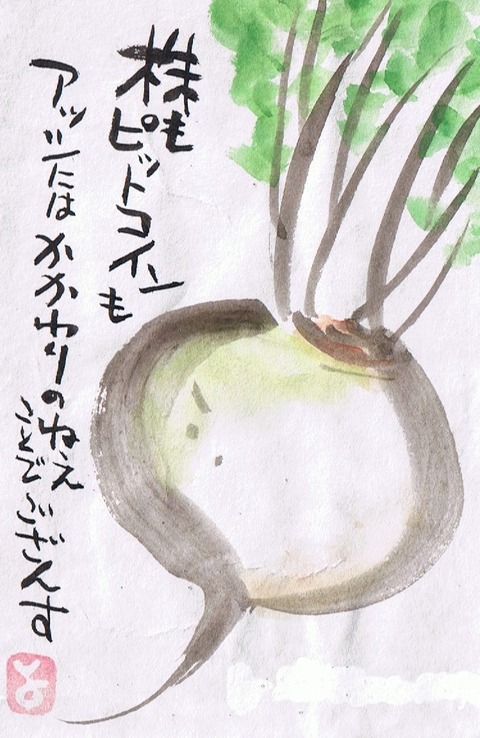 株もピットコインも
アッシにはかかわりのねえ
ことでござんす
と